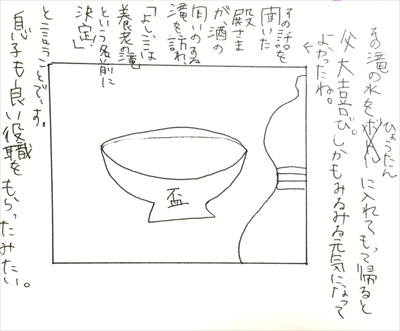 その滝の水をひょうたんに入れてもって帰ると
父大喜び。しかもみるみる元気になって
よかったね。
その話を
聞いた
殿さま
が酒の
滝を訪れ、
「よし、ここは
養老の滝
という名前に
決定」
と言うことです。
息子も良い役職をもらったみたい。
盃